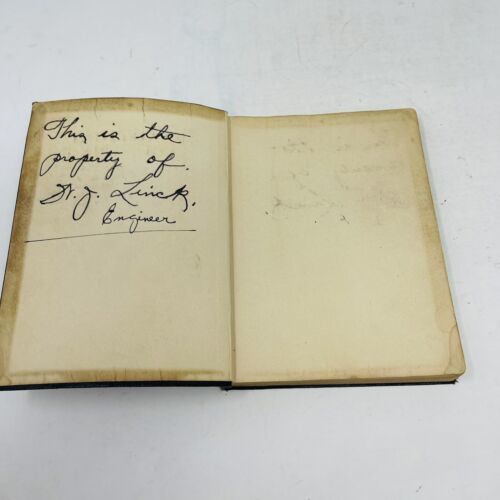 This is the
property of.
W. J. Linck,
Engineer